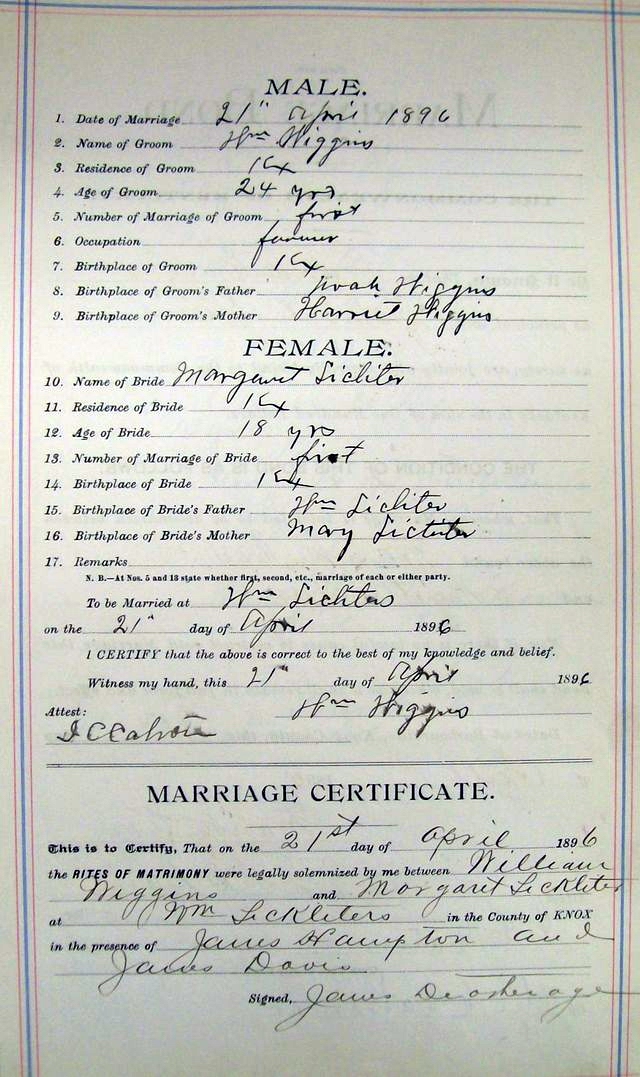 MALE.
1. Date of Marriage 21" April 1896
2. Name of Groom Wm Wiggins
3. Residence of Groom Ky
4. Age of Groom 24 yrs
5. Number of Marriage of Groom first
6. Occupation farmer
7. Birthplace of Groom Ky
8. Birthplace of Groom's Father Noah Wiggins
9. Birthplace of Groom's Mother Harriet Wiggins
FEMALE.
10. Name of Bride Margaret Lickliter
11. Residence of Bride Ky
12. Age of Bride 18 yrs
13. Number of Marriage of Bride first
14. Birthplace of Bride Ky
15. Birthplace of Bride's Father Wm Lickliter
16. Birthplace of Bride's Mother Mary Lickliter
17. Remarks
N. B.—At Nos. 5 and 13 state whether first, second, etc., marriage of each or either party.
To be Married at Wm Lickliters
on the 21" day of April 1896
I CERTIFY that the above is correct to the best of my knowledge and belief.
Witness my hand, this 21" day of April 1896
Attest: Wm Wiggins
MARRIAGE CERTIFICATE.
This is to Certify, That on the 21st day of April 1896
the RITES OF MATRIMONY were legally solemnized by me between William
Wiggins and Margaret Lickliter
at Wm Lickliters in the County of KNOX
in the presence of James Hampton and
James Davis
Signed, James